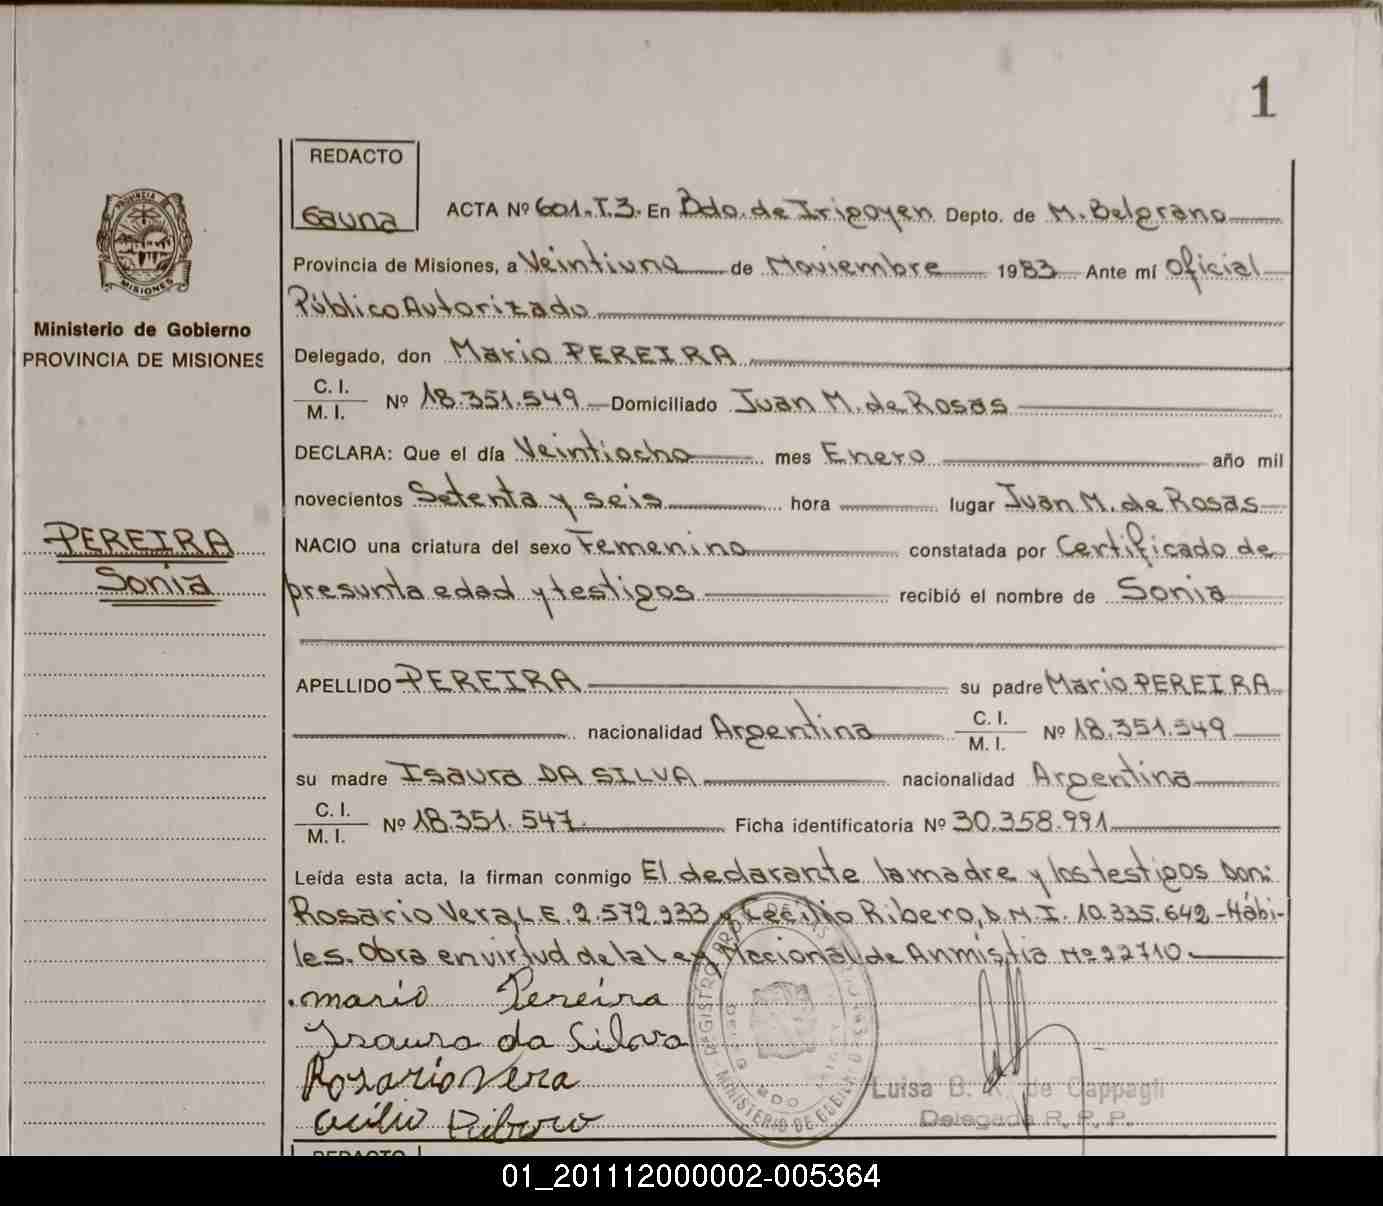 1
REDACTO
Gauna
ACTA Nº 601.T.3. En Bdo. de Irigoyen Depto. de M. Belgrano
Provincia de Misiones, a Veintiuno de Noviembre 1983 Ante mí Oficial
Público Autorizado
Delegado, don Mario PEREIRA
C. I.
M. I.
Nº 18.351.549 Domiciliado Juan M. de Rosas
DECLARA: Que el día Veintiocho mes Enero año mil
novecientos Setenta y seis hora lugar Juan M. de Rosas
NACIO una criatura del sexo Femenino constatada por Certificado de
presunta edad y testigos recibió el nombre de Sonia
APELLIDO PEREIRA su padre Mario PEREIRA
nacionalidad Argentina C. I. M. I. Nº 18.351.549
su madre Isaura DA SILVA nacionalidad Argentina
C. I.
M. I.
Nº 18.351.547 Ficha identificatoria Nº 30.358.991
Leída esta acta, la firman conmigo El declarante la madre y los testigos Don:
Rosario Vera, L.E. 2.572.933 y Cecilio Ribero, D.N.I. 10.335.642-Hábi-
les. Obra en virtud de la Ley Nacional de Anmistia Nº 22710
mario Pereira
Isaura da Silva
Rosario Vera
Cecilio Ribero
Luisa B. de Cappagli
Delegada R. P. P.
MINISTERIO DE GOBIERNO
PROVINCIA DE
MISIONES
Ministerio de Gobierno
PROVINCIA DE MISIONES
PEREIRA
Sonia
REDACTO
01_201112000002-005364